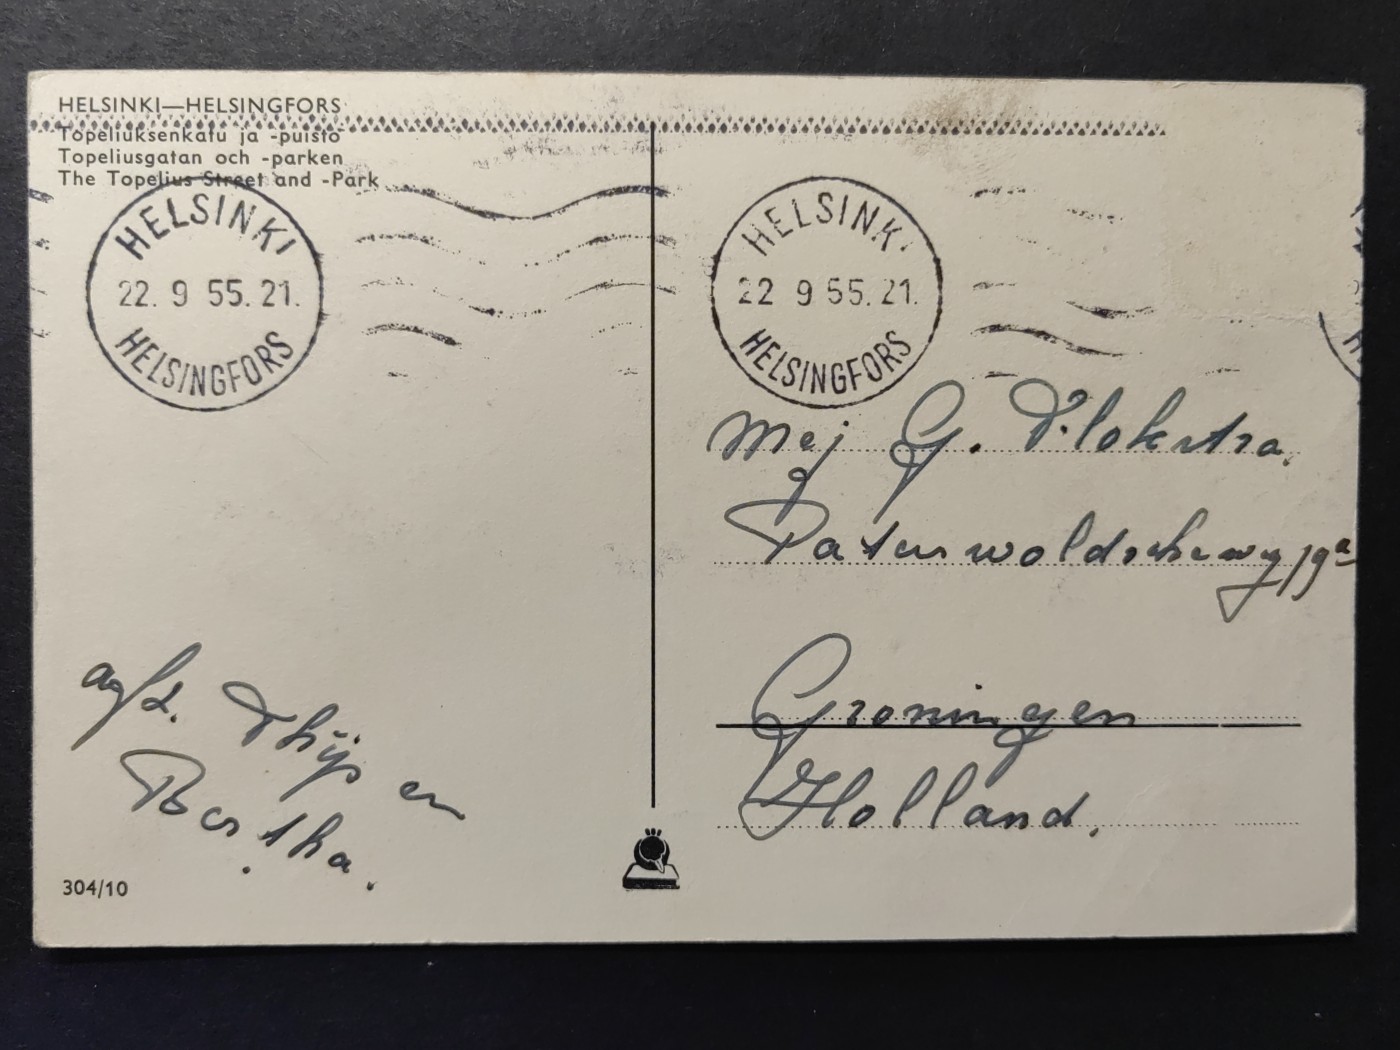 HELSINKI—HELSINGFORS
Topeliuksenkatu ja -puisto
Topeliusgatan och -parken
The Topelius Street and -Park
HELSINKI
22. 9 55. 21.
HELSINGFORS
HELSINKI
22 9 55. 21.
HELSINGFORS
Mej G. Vlokstra.
Paterswoldscheweg 19a
Groningen
Holland.
afz. Thijs en
Bertha.
304/10